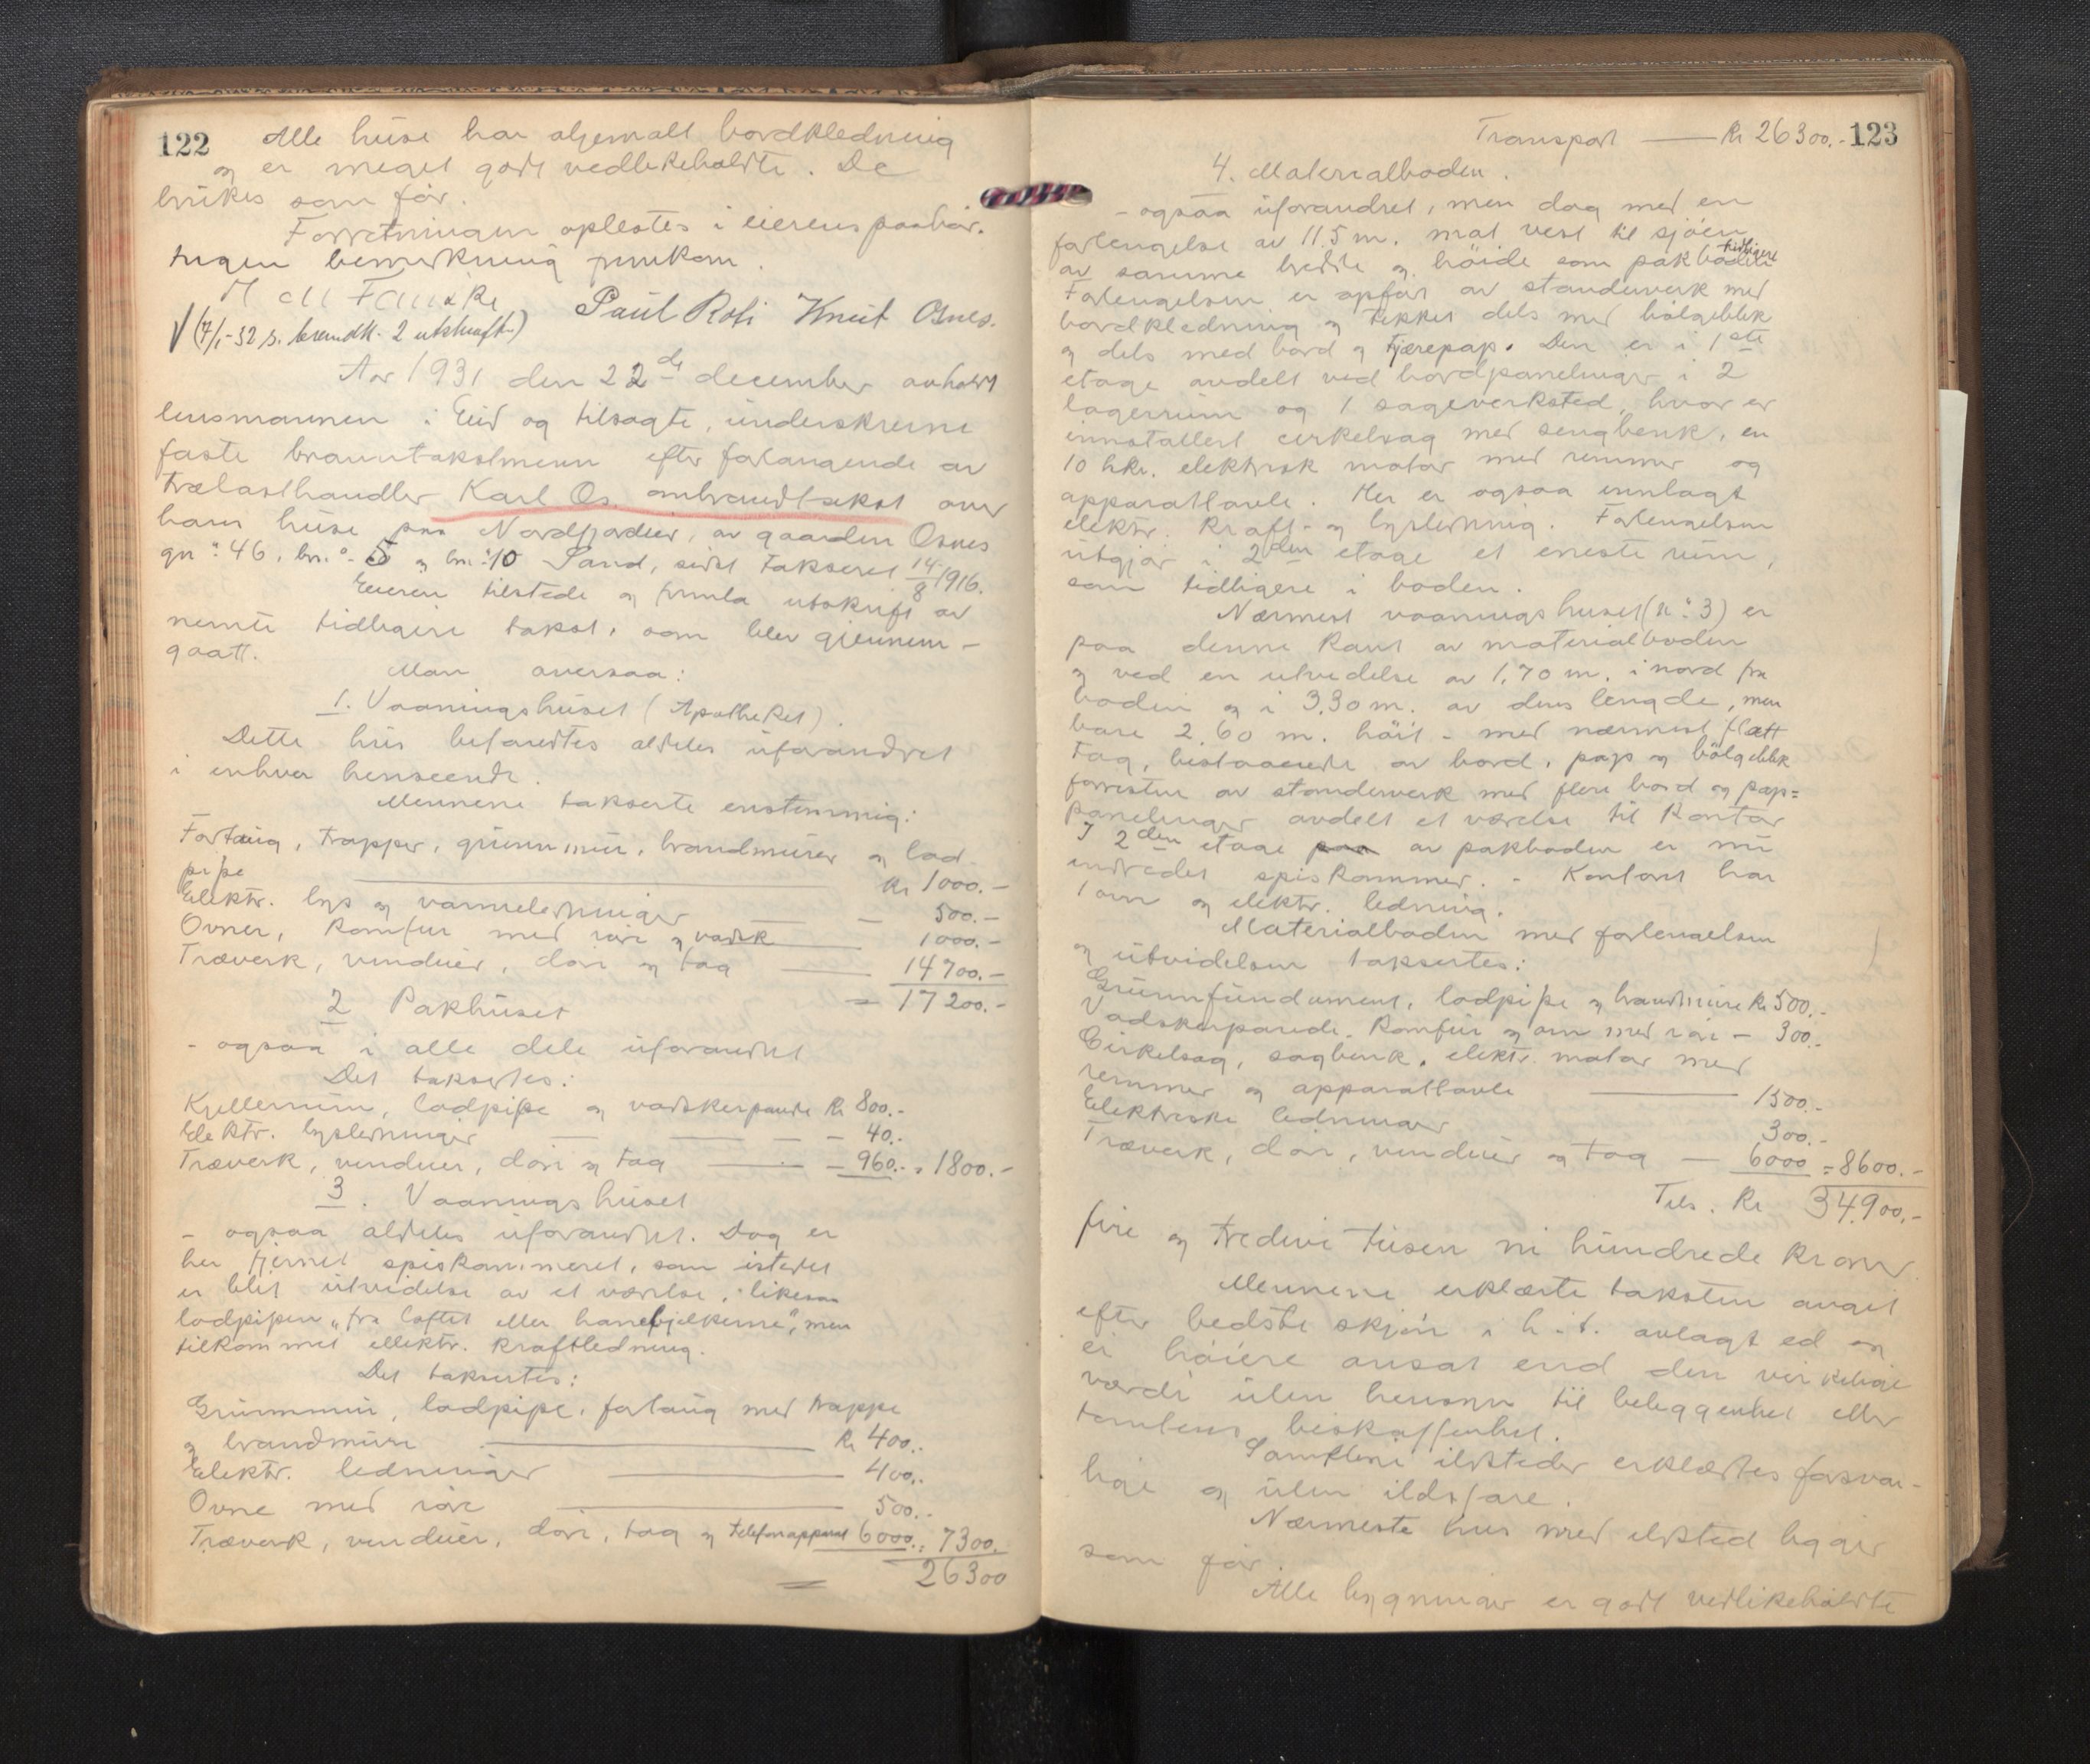 122
Alle huse har oljemalt bordkledning
og er meget godt vedlikeholdte. De
brukes som før.
Forretningen oplestes i eierens paahør.
Ingen bemerkning fremkom.
Paul Roti Knut Osnes.
√ (7/1-32 s. 2 utskrift.)
Aar 1931 den 22de december avholdt
lensmannen i Eid og tilsagte, underskrevne
faste branntakstmenn efter forlangende av
trælasthandler Karl Os. ombrandtakst over
hans huse paa Nordfjordeid, av gaarden Osnes
gn.º 46, bn.º 5 og bn.º 10 Sand, sidst takseret 14/8 1916.
Eieren tilstede og fremla utskrift av
nemte tidligere takst, som blev gjennem-
gaatt.
Man oversaa:
1. Vaaningshuset (Apotheket).
Dette hus befandtes aldeles uforandret
i enhver henseende.
Mennene takserte enstemmig:
Fortaug, trapper, grunnmur, brandmurer og lod-
pipe Kr 1000.-
Elektr. lys og varmeledninger — - 500.-
Ovner, komfur med rør og vadsk 1000.-
Træverk, vinduer, dører og tag 14700.-
= 17200.-
2 Pakhuset
- ogsaa i alle dele uforandret
Det taksertes:
Kjellerrum, lodpipe og vadskerpande Kr 800.-
Elektr. lysledninger — — - - 40.-
Træverk, vinduer, dører og tag — - 960.- = 1800.-
3. Vaaningshuset
- ogsaa aldeles uforandret. Dog er
her fjernet spiskammeret, som istedet
er blit utvidelse av et værelse, likesom
lodpipen "fra loftet eller hanebjelkerne", men
tilkommet ellektr. kraftledning.
Det taksertes:
Grunnmur, lodpipe, fortaug med trappe
og brandmure Kr 400.-
Elektr. ledninger 400.-
Ovne med rør 500.-
Træverk, vinduer, dører, tag og telefonapparat 6000.- = 7300.
= 26300
Transport — Kr 26300.- 123
4. Materialboden.
- ogsaa uforandret, men dog med en
forlengelse av 11.5 m. mot vest til sjøen
av samme bredde og høide som tidligere pakboden
Forlengelsen er opført av standerverk med
bordkledning og tekket dels med bølgeblik
og dels med bord og tjærepap. Den er i 1ste
etage avdelt ved bordpanelinger i 2
lagerrum og 1 sageverksted, hvor er
innstallert cirkelsag med sengbenk, en
10 hkr. elektrisk motor med remmer og
apparattavle. Her er ogsaa innlagt
elektr. kraft- og lysledning. Forlengelsen
utgjør i 2den etage et eneste rum,
som tidligere i boden.
Nærmest vaaningshuset (nº 3) er
paa denne kant av materialboden
og ved en utvidelse av 1,70 m. i nord fra
boden og i 3.30 m. av dens lengde, men
bare 2.60 m. høit - med nærmest flatt
tag, bestaaende av bord, pap og bølgeblik
forresten av standerverk med flere bord og pap-
panelinger avdelt et værelse til kontor
I 2den etage av pakboden er nu
indredet spiskammer. - Kontoret har
1 ovn og elektr. ledning.
Materialboden med forlengelsen
og utvidelsen taksertes:
Grunnfundament, lodpipe og brandmure Kr 500.-
Vadskerpande, komfur og ovn med rør - 300.-
Cirkelsag, sagbenk, elektr. motor med
remmer og apparattavle 1500.-
Elektriske ledninger 300.-
Træverk, dører, vinduer og tag — 6000 = 8600.-
Tils. Kr 34.900.-
fire og tredive tusen ni hundrede kroner.
Mennene erklærte taksten avgit
efter bedste skjøn i h.t. avlagt ed og
ei høiere ansat end den virkelige
værdi uten hensyn til beliggenhet eller
tomtens beskaffenhet.
Samtlene ildsteder erklærtes forsvar-
lige og uten ildsfare.
Nærmeste hus med ildsted ligger
som før.
Alle bygninger er godt vedlikeholdte